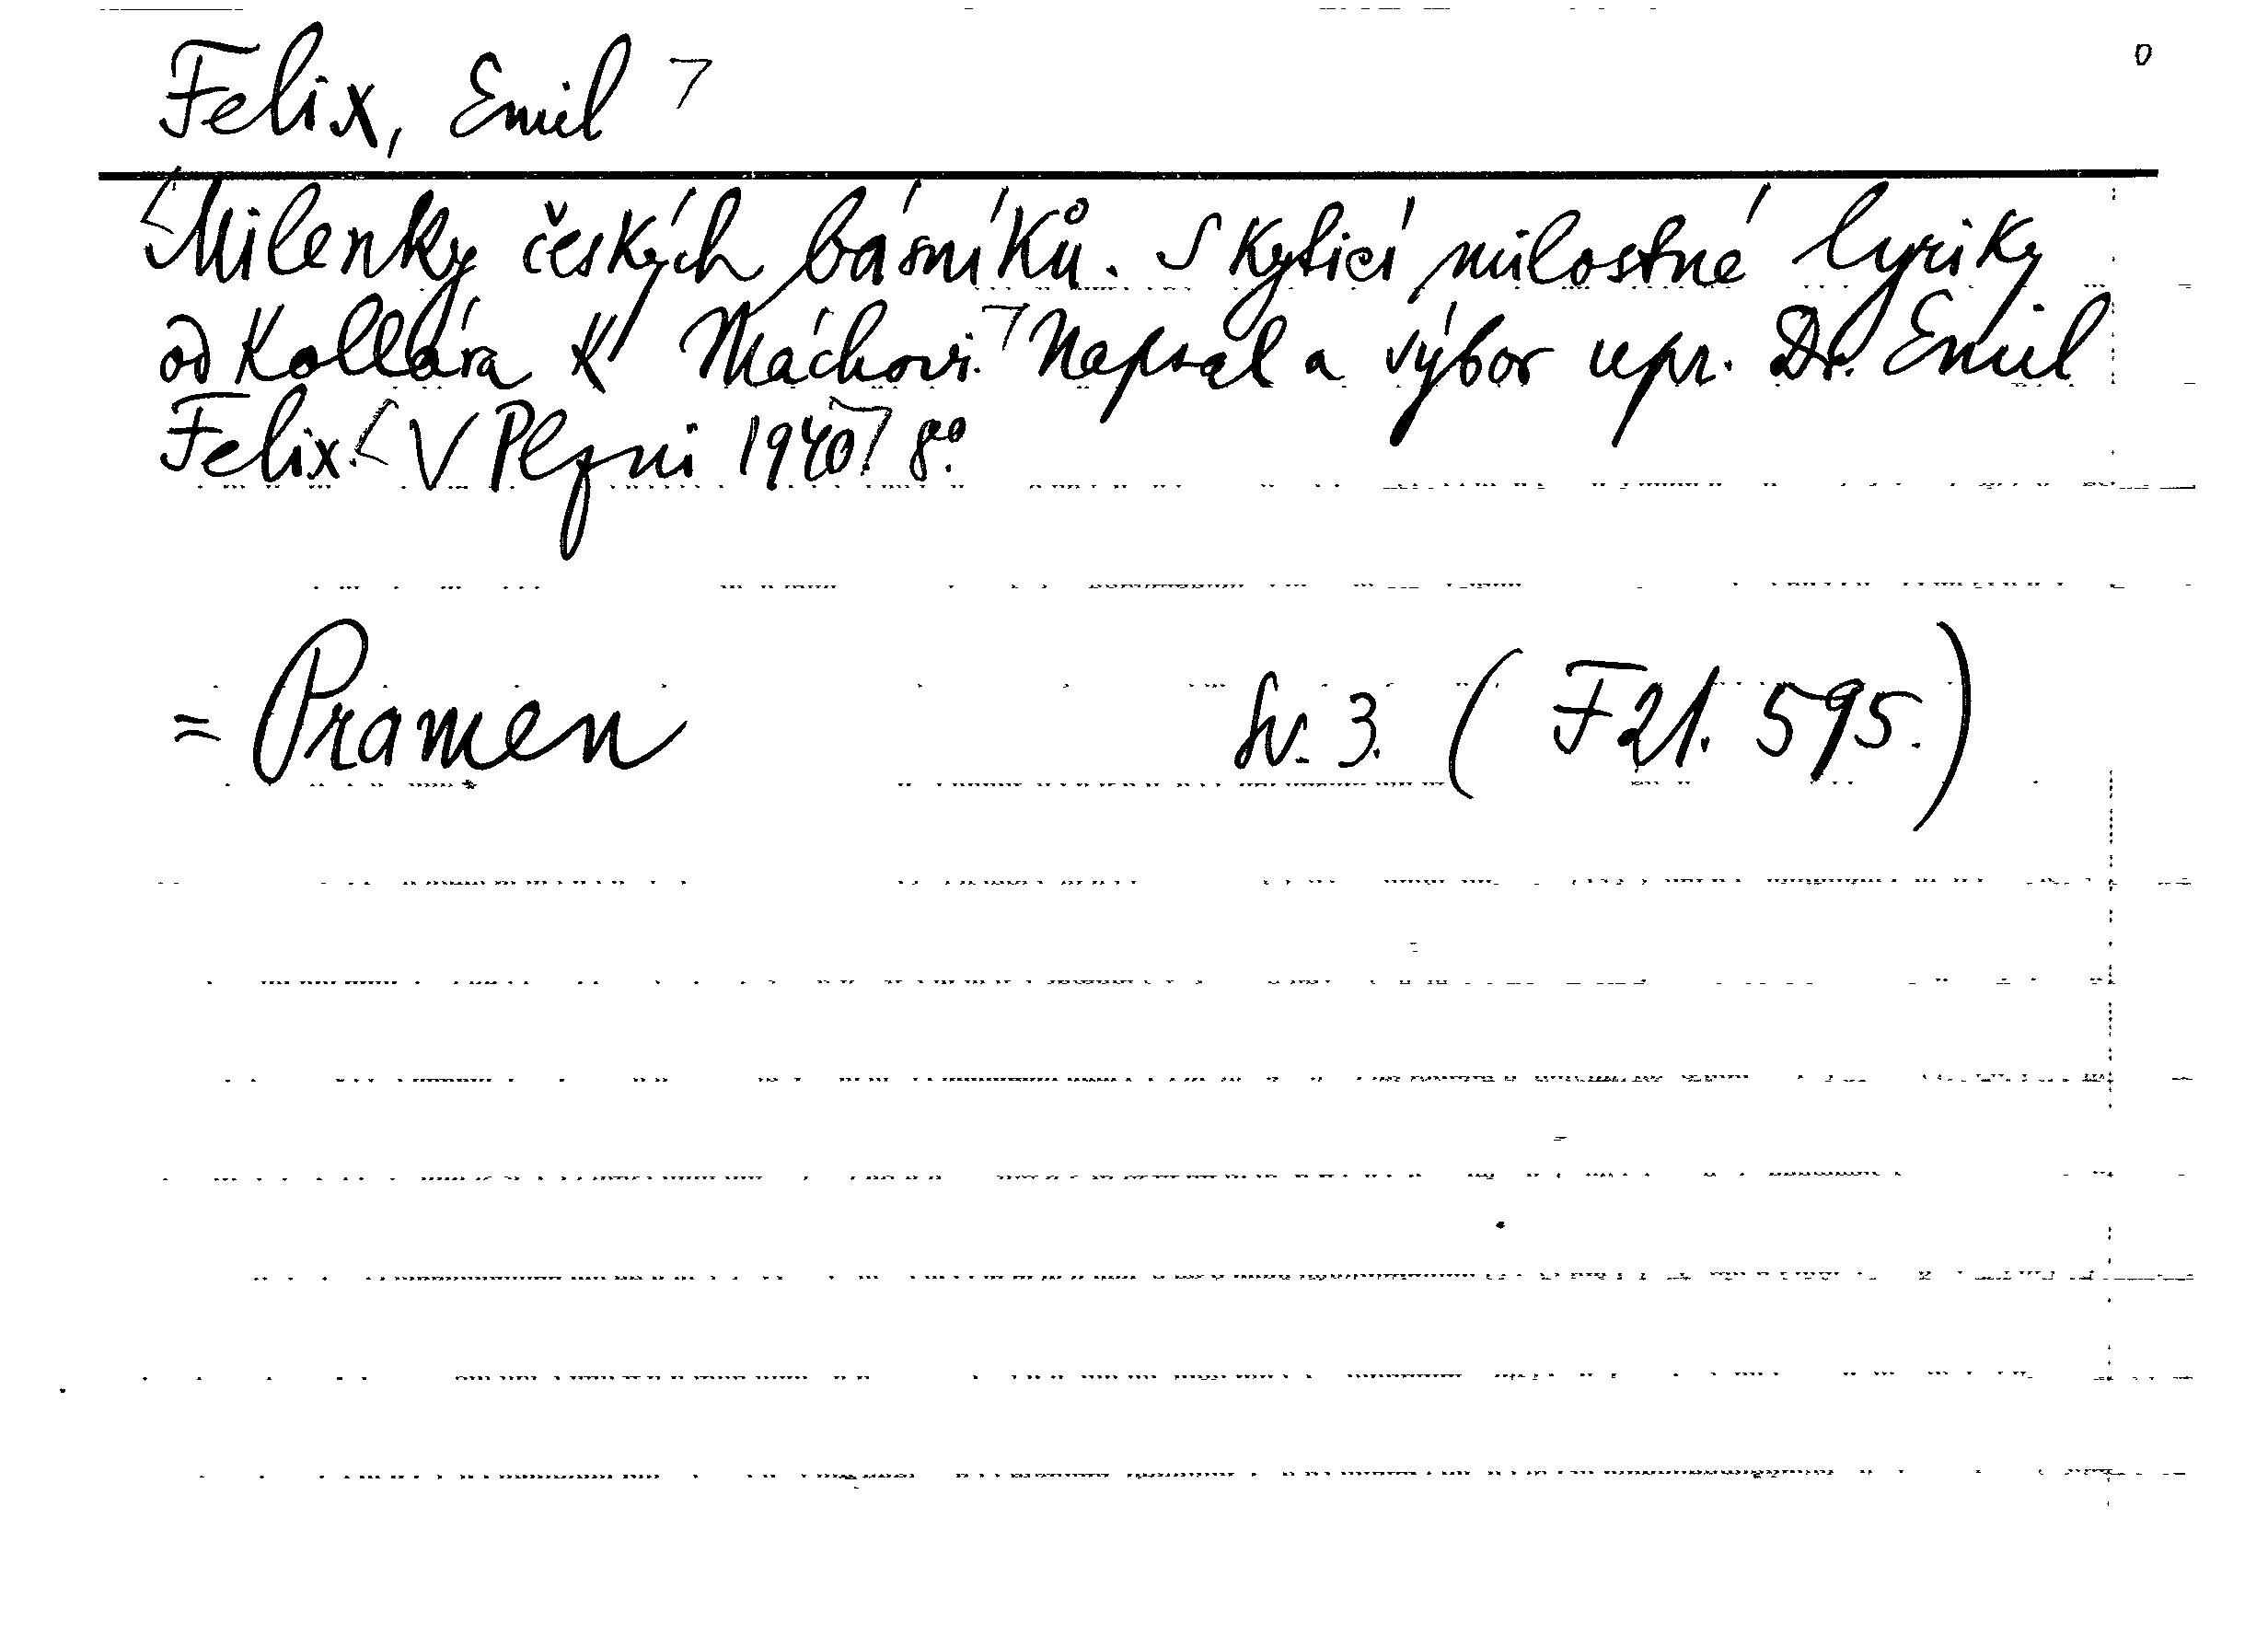 Felix, Emil
Milenky českých básníků. S kyticí milostné lyriky
od Kollára k Máchovi. Napsal a výbor upr. Dr. Emil
Felix. V Plzni 1940. 8°.
= Pramen Sv. 3. (F 21. 595.)